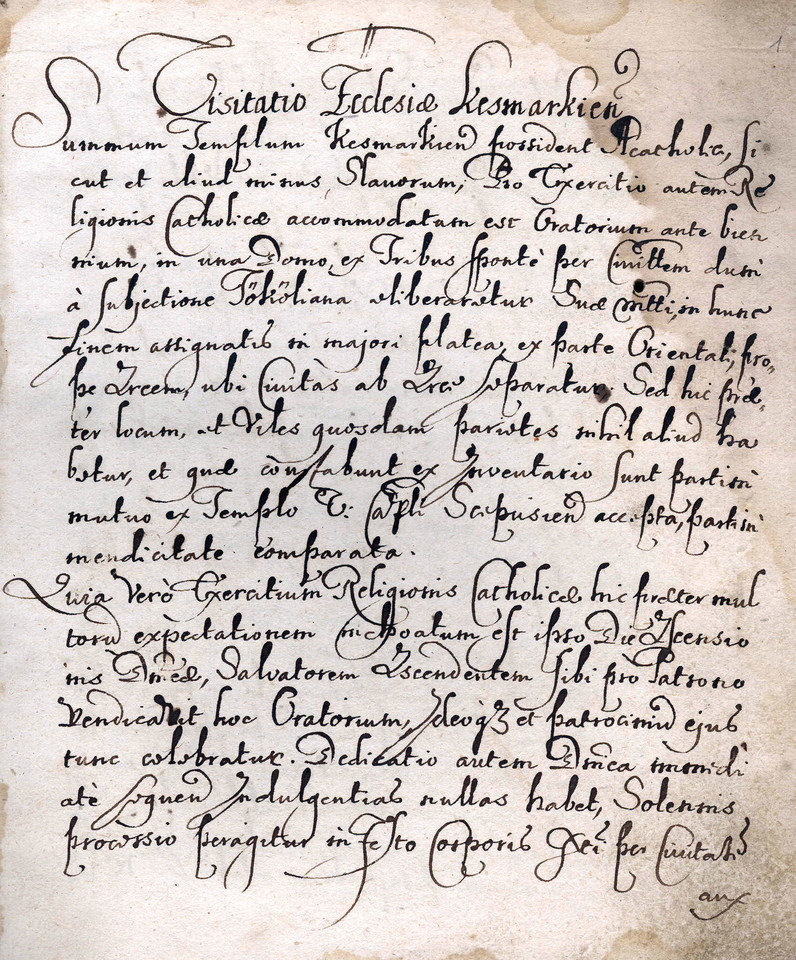 1
Visitatio Ecclesiæ Kesmarkien
Summum Templum Kesmarkien possident Acatholici, si
cut et aliud minus, Slavorum, Pro Exercitio autem Re
ligionis Catholicæ accommodatum est Oratorium ante bien
nium, in una Domo, ex Tribus spontè per Civittem dum
à subjectione Tököliana eliberaretur Suæ Mtti, in hunc
finem assignatis in majori platea, ex parte Orientali, pro-
pe Arcem, ubi Civitas ab Arce separatur. Sed hic præ-
ter locum, et Viles quosdam parietes nihil aliud ha
betur, et quæ constabunt ex Inventario sunt partim
mutuò ex Templo V: Capli Scepusien accepta, partim
mendicitate comparata.
Quia Verò Exercitium Religionis Catholicæ hic præter mul
torũ expectationem inchoatum est ipso Die Ascensio
nis Dnicæ, Salvatorem Ascendentem sibi prò Patrono
Vendicavit hoc Oratorium, Ideoq3 et patrociniũ ejus
tunc celebratur. Dedicatio autem Dnica immedi
atè sequen Indulgentias nullas habet, Solennis
processio peragitur in Festo Corporis Xti per Civitatē
aux